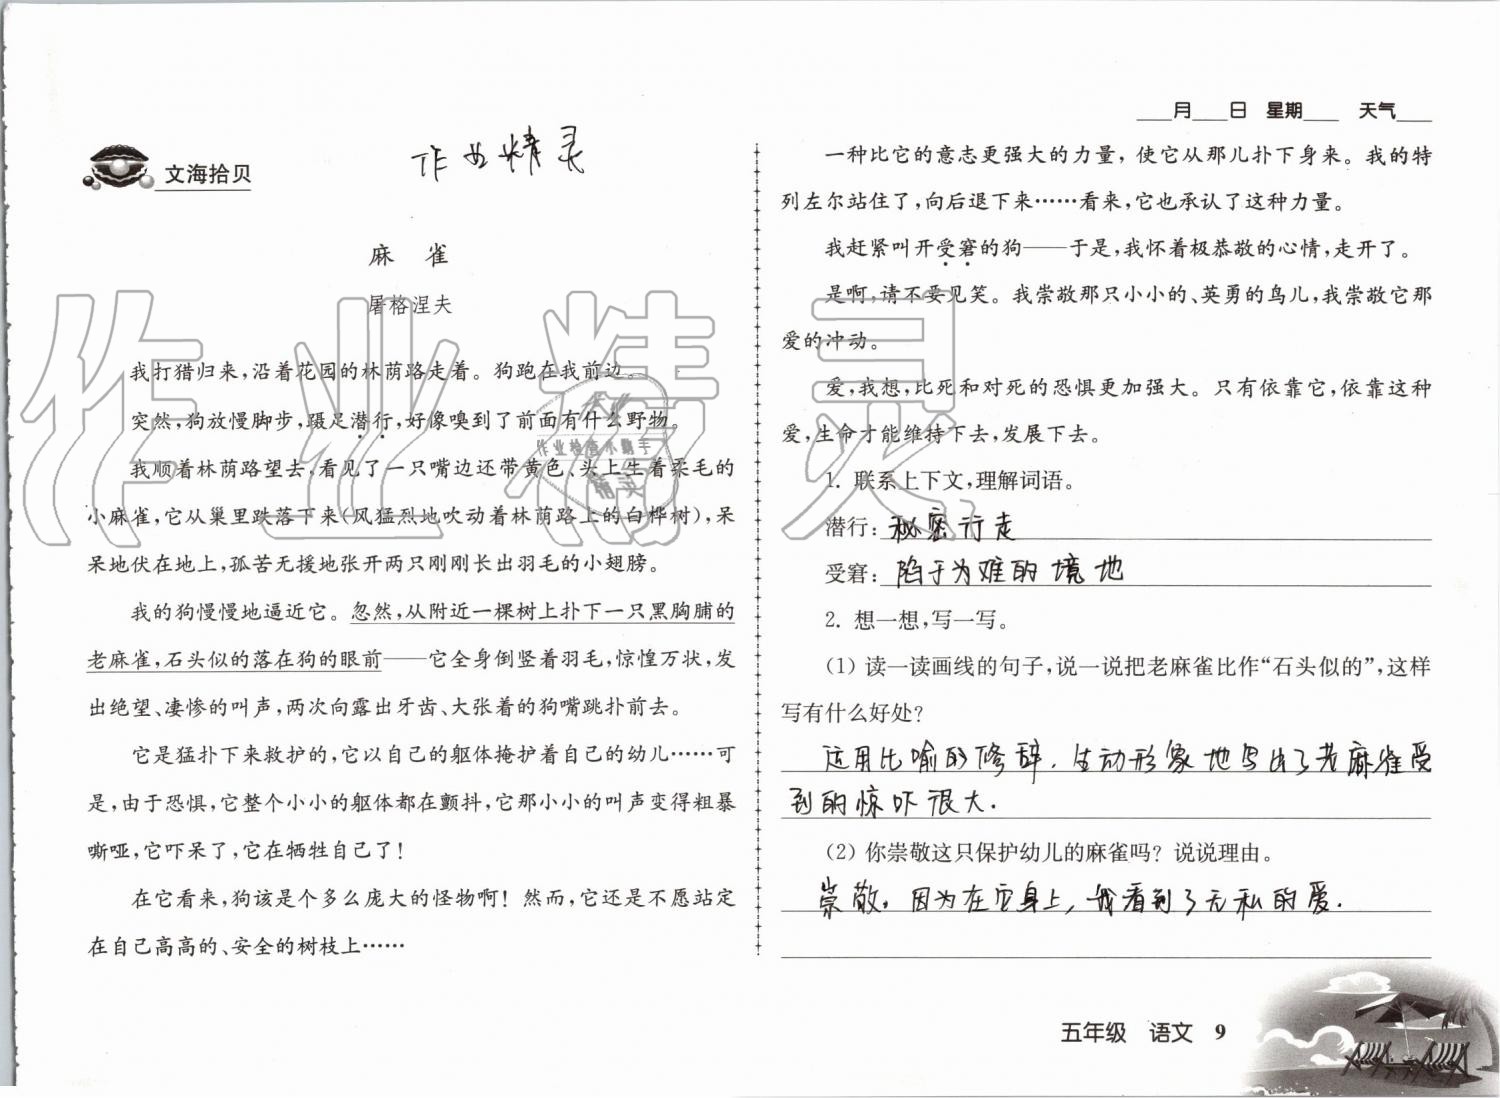 文海拾贝
作业精灵
麻雀
屠格涅夫
我打猎归来,沿着花园的林荫路走着。狗跑在我前边。
突然,狗放慢脚步,蹑足潜行,好像嗅到了前面有什么野物。
我顺着林荫路望去,看见了一只嘴边还带黄色、头上生着柔毛的
小麻雀,它从巢里跌落下来(风猛烈地吹动着林荫路上的白桦树),呆
呆地伏在地上,孤苦无援地张开两只刚刚长出羽毛的小翅膀。
我的狗慢慢地逼近它。忽然,从附近一棵树上扑下一只黑胸脯的
老麻雀,石头似的落在狗的眼前——它全身倒竖着羽毛,惊惶万状,发
出绝望、凄惨的叫声,两次向露出牙齿、大张着的狗嘴跳扑前去。
它是猛扑下来救护的,它以自己的躯体掩护着自己的幼儿……可
是,由于恐惧,它整个小小的躯体都在颤抖,它那小小的叫声变得粗暴
嘶哑,它吓呆了,它在牺牲自己了!
在它看来,狗该是个多么庞大的怪物啊!然而,它还是不愿站定
在自己高高的、安全的树枝上……
月 日 星期 天气
一种比它的意志更强大的力量,使它从那儿扑下身来。我的特
列左尔站住了,向后退下来……看来,它也承认了这种力量。
我赶紧叫开受窘的狗——于是,我怀着极恭敬的心情,走开了。
是啊,请不要见笑。我崇敬那只小小的、英勇的鸟儿,我崇敬它那
爱的冲动。
爱,我想,比死和对死的恐惧更加强大。只有依靠它,依靠这种
爱,生命才能维持下去,发展下去。
1. 联系上下文,理解词语。
潜行:秘密行走
受窘:陷于为难的境地
2. 想一想,写一写。
(1) 读一读画线的句子,说一说把老麻雀比作“石头似的”,这样
写有什么好处?
运用比喻的修辞,生动形象地写出了老麻雀受
到的惊吓很大.
(2) 你崇敬这只保护幼儿的麻雀吗?说说理由。
崇敬,因为在它身上,我看到了无私的爱.
五年级 语文 9
作业精灵
作业
作业检查小助手
精灵